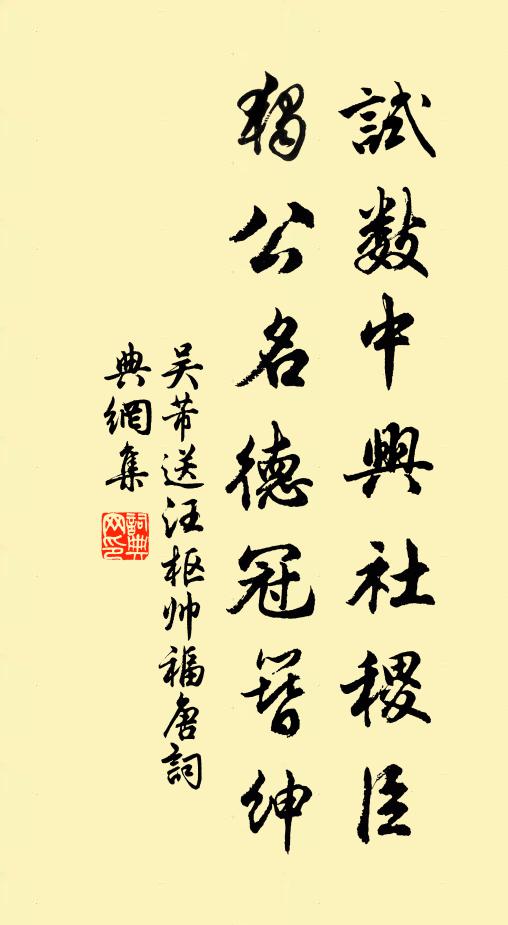 試數中興社稷臣
獨公名德冠簪紳
吴芾送汪枢帅福唐詞
典網集
詞典
网印